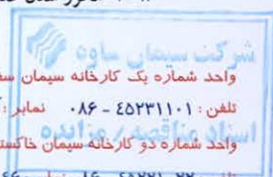 شرکت سیمان ساوه
واحد شماره یک کارخانه سیمان سف
تلفن : ٤٥٢٣١١٠١ - ٠٨٦ نمابر :
اسناد مناقصه / مزایده
واحد شماره دو کارخانه سیمان خاکست